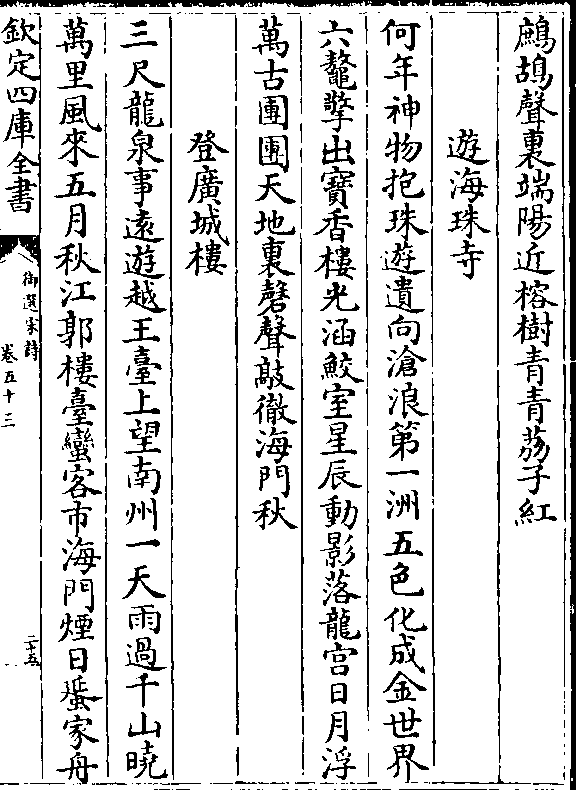 鷓鴣聲裏端陽近榕樹青青荔子紅
遊海珠寺
何年神物抱珠遊遺向滄浪第一洲五色化成金世界
六鼇擎出寶香樓光涵鮫室星辰動影落龍宫日月浮
萬古團團天地裏磬聲敲徹海門秋
登廣城樓
三尺龍泉事遠遊越王臺上望南州一天雨過千山曉
萬里風來五月秋江郭樓臺蠻客市海門煙日蜑家舟
欽定四庫全書
御選宋詩
卷五十三
二十五